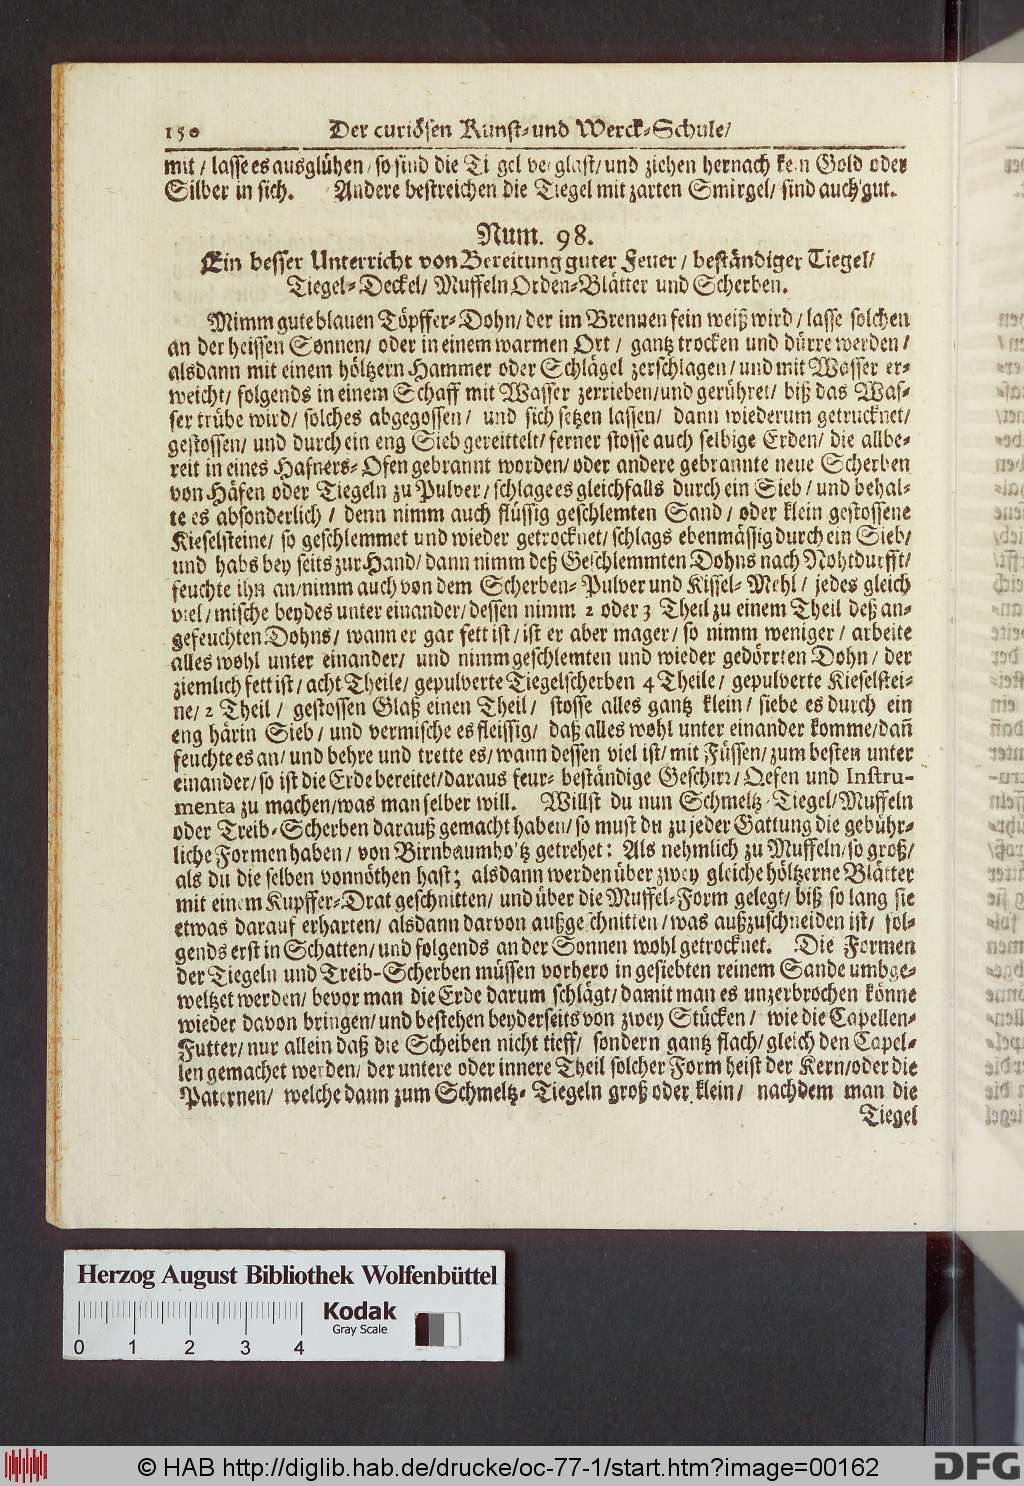 150 Der curiösen Kunst- und Werck-Schule/
mit/ lasse es ausglühen/ so sind die Tigel verglast/ und ziehen hernach kein Gold oder
Silber in sich. Andere bestreichen die Tiegel mit zarten Smirgel/ sind auch gut.
Num. 98.
Ein besser Unterricht von Bereitung guter Feuer/ beständiger Tiegel/
Tiegel-Deckel/ Muffeln Orden-Blätter und Scherben.
Nimm gute blauen Töpffer-Dohn/ der im Brennen fein weiß wird/ lasse solchen
an der heissen Sonnen/ oder in einem warmen Ort/ gantz trocken und dürre werden/
alsdann mit einem höltzern Hammer oder Schlägel zerschlagen/ und mit Wasser er-
weicht/ folgends in einem Schaff mit Wasser zerrieben/ und gerühret/ biß das Was-
ser trübe wird/ solches abgegossen/ und sich setzen lassen/ dann wiederum getrucknet/
gestossen/ und durch ein eng Sieb gereittelt/ ferner stosse auch selbige Erden/ die allbe-
reit in eines Hafners-Ofen gebrannt worden/ oder andere gebrannte neue Scherben
von Häfen oder Tiegeln zu Pulver/ schlage es gleichfalls durch ein Sieb/ und behal-
te es absonderlich/ denn nimm auch flüssig geschlemten Sand/ oder klein gestossene
Kieselsteine/ so geschlemmet und wieder getrocknet/ schlags ebenmässig durch ein Sieb/
und habs bey seits zur Hand/ dann nimm deß Geschlemmten Dohns nach Nohtdurfft/
feuchte ihn an/ nimm auch von dem Scherben-Pulver und Kissel-Mehl/ jedes gleich
viel/ mische beydes unter einander/ dessen nimm 2 oder 3 Theil zu einem Theil deß an-
gefeuchten Dohns/ wann er gar fett ist/ ist er aber mager/ so nimm weniger/ arbeite
alles wohl unter einander/ und nimm geschlemten und wieder gedörrten Dohn/ der
ziemlich fett ist/ acht Theile/ gepulverte Tiegelscherben 4 Theile/ gepulverte Kieselstei-
ne/ 2 Theil/ gestossen Glaß einen Theil/ stosse alles gantz klein/ siebe es durch ein
eng härin Sieb/ und vermische es fleissig/ daß alles wohl unter einander komme/ dañ
feuchte es an/ und behre und trette es/ wann dessen viel ist/ mit Füssen/ zum besten unter
einander/ so ist die Erde bereitet/ daraus feur-beständige Geschirr/ Oefen und Instru-
menta zu machen/ was man selber will. Willst du nun Schmeltz-Tiegel/ Muffeln
oder Treib-Scherben darauß gemacht haben/ so must du zu jeder Gattung die gebühr-
liche Formen haben/ von Birnbaumholtz getrehet: Als nehmlich zu Muffeln/ so groß/
als du die selben vonnöthen hast; alsdann werden über zwey gleiche höltzerne Blätter
mit einem Kupffer-Drat geschnitten/ und über die Muffel-Form gelegt/ biß so lang sie
etwas darauf erharten/ alsdann darvon außgeschnitten/ was außzuschneiden ist/ fol-
gends erst in Schatten/ und folgends an der Sonnen wohl getrocknet. Die Formen
der Tiegeln und Treib-Scherben müssen vorhero in gesiebten reinem Sande umbge-
weltzet werden/ bevor man die Erde darum schlägt/ damit man es unzerbrochen könne
wieder davon bringen/ und bestehen beyderseits von zwey Stücken/ wie die Capellen-
Futter/ nur allein daß die Scheiben nicht tieff/ sondern gantz flach/ gleich den Capel-
len gemachet werden/ der untere oder innere Theil solcher Form heist der Kern/ oder die
Paternen/ welche dann zum Schmeltz-Tiegeln groß oder klein/ nachdem man die
Tiegel
Herzog August Bibliothek Wolfenbüttel
Kodak
Gray Scale
0 1 2 3 4
© HAB http://diglib.hab.de/drucke/oc-77-1/start.htm?image=00162
DFG